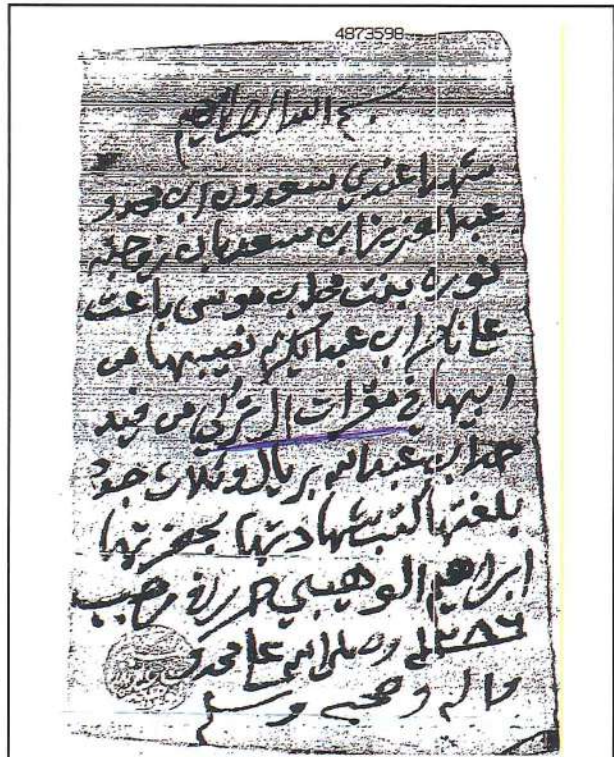 4873598
بسم الله الرحمن الرحيم
شهدا عندي سعدون ابن محمد و
عبد العزيز ابن سعد بان زوجته
نوره بنت محمد بن موسى باعت
على ناصر ابن عبد الكريم نصيبها من
ابيها في التركي من
عبد الله بريال وثلاث
بلغتها كتب شهادتها بحضرتها
ابراهيم الوهيبي حرر رجب
١٢٨٦ وصلى الله على محمد و
واله وصحبه وسلم